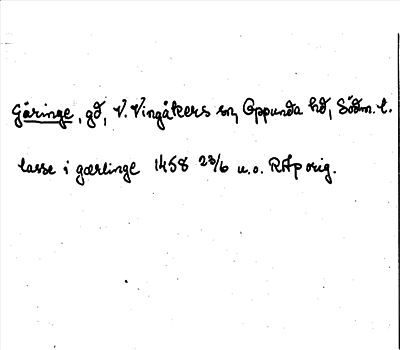 Gäringe, gd, V. Vingåkers sn, Oppunda hd, Södm. l.
lasse i gærlinge 1458 23/6 u.o. RAp orig.